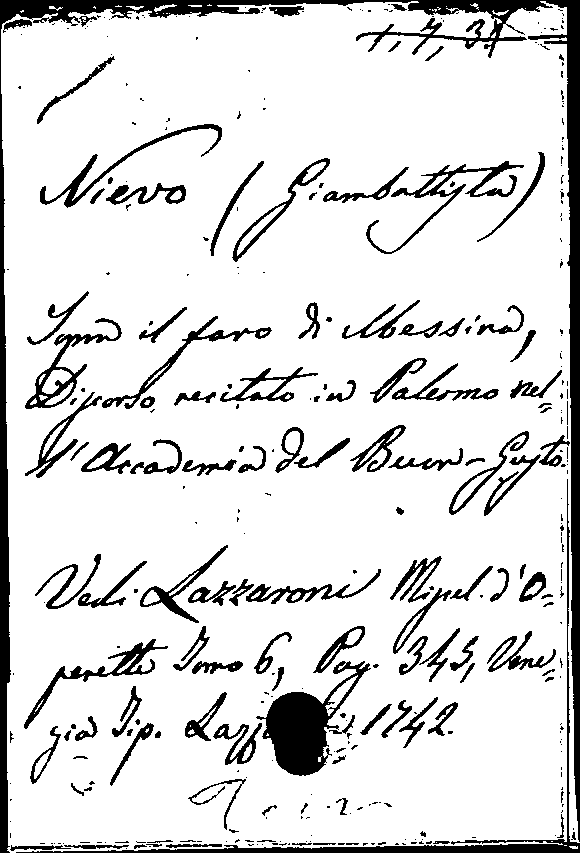 Nievo (Giambattista)
Sopra il faro di Messina,
Discorso recitato in Palermo nel-
l'Accademia del Buon-Gusto.
Vedi Lazzaroni Miscel. d'O-
perette Tomo 6, Pag. 345, Vene-
zia Tip. 1742.